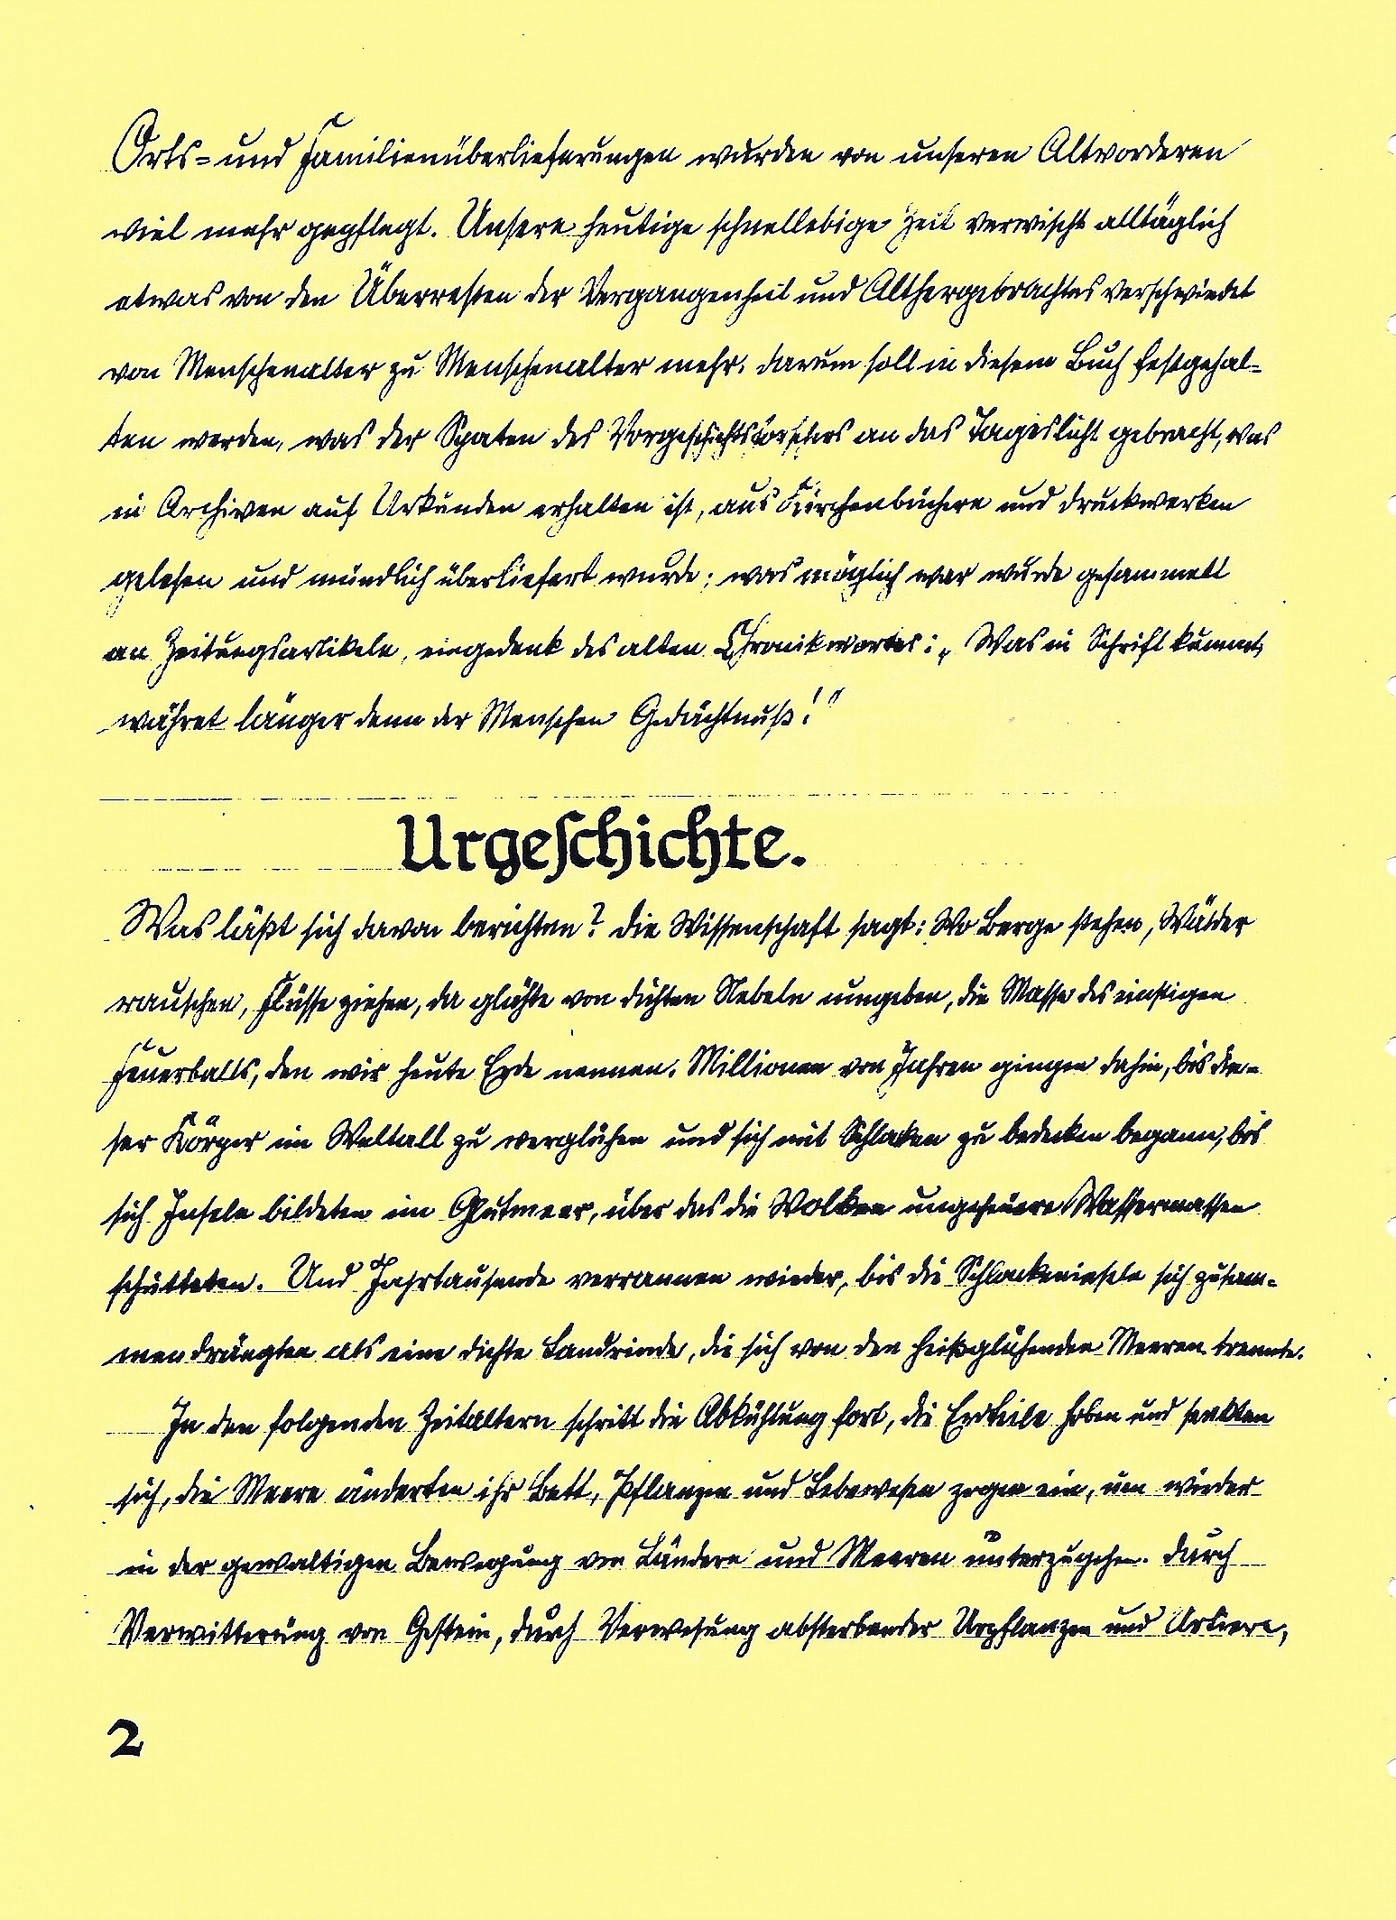 Orts- und Familienüberlieferungen wurden von unseren Altvorderen
viel mehr gepflegt. Unsere heutige schnellebige Zeit verwischt alltäglich
etwas von den Überresten der Vergangenheit und Althergebrachtes verschwindet
von Menschenalter zu Menschenalter mehr. Darum soll in diesem Buch festgehal-
ten werden, was der Spaten des Vorgeschichtsforschers an das Tageslicht gebracht, was
in Archiven auf Urkunden erhalten ist, aus Kirchenbüchern und Druckwerken
gelesen und mündlich überliefert wurde; was möglich war wurde gesammelt
an Zeitungsartikeln, eingedenk des alten Chronikwortes: „Was in Schrift kummt,
währet länger denn der Menschen Gedächtnuß!"
Urgeschichte.
Was läßt sich davon berichten? Die Wissenschaft sagt: Wo Berge stehen, Wälder
rauschen, Flüsse ziehen, da glühte von dichten Nebeln umgeben, die Masse des einstigen
Feuerballs, den wir heute Erde nennen. Millionen von Jahren gingen dahin, bis die-
ser Körper im Weltall zu verglühen und sich mit Schlacken zu bedecken begann, bis
sich Inseln bildeten im Glutmeer, über das die Wolken ungeheuere Wassermassen
schütteten. Und Jahrtausende verrannen wieder, bis die Schlackeninseln sich zusam-
mendrängten als eine dichte Landrinde, die sich von den heißglühenden Meeren trennte.
In den folgenden Zeitaltern schritt die Abkühlung fort, die Erdteile hoben und senkten
sich, die Meere änderten ihr Bett, Pflanzen und Lebewesen zogen ein, um wieder
in der gewaltigen Bewegung von Ländern und Meeren unterzugehen. Durch
Verwitterung von Gestein, durch Verwesung absterbender Urpflanzen und Urtiere,
2